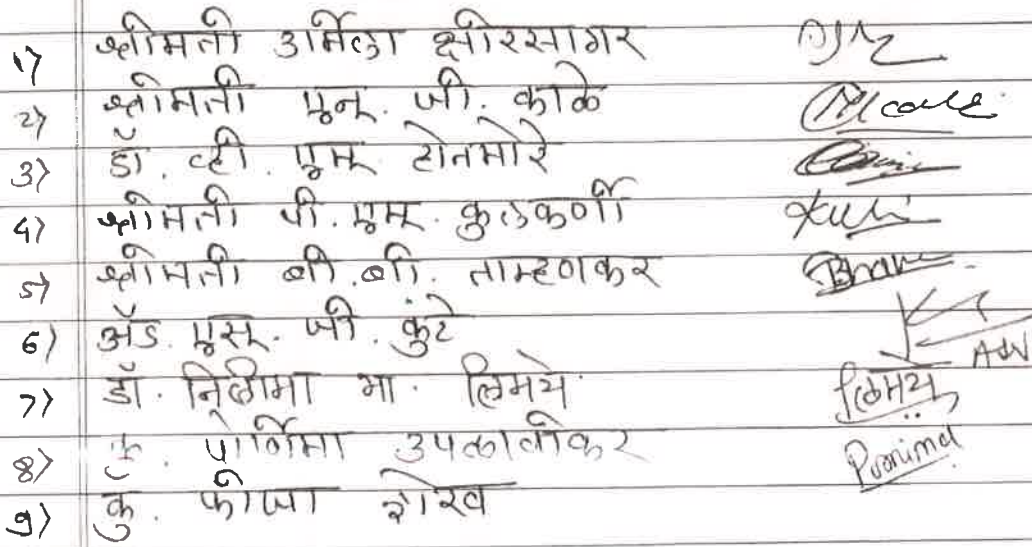 1) श्रीमती उर्मिला क्षीरसागर
2) श्रीमती एन. जी. काळे
3) डॉ. व्ही. एम. टोनमोरे
4) श्रीमती पी. एम. कुलकर्णी
5) श्रीमती बी. बी. ताम्हणकर
6) ॲड. एस. जी. कुंटे Adv
7) डॉ. निलीमा भा. लिमये लिमये
8) कु. पोर्णिमा उपळावीकर Purnima
9) कु. फीजा शेख